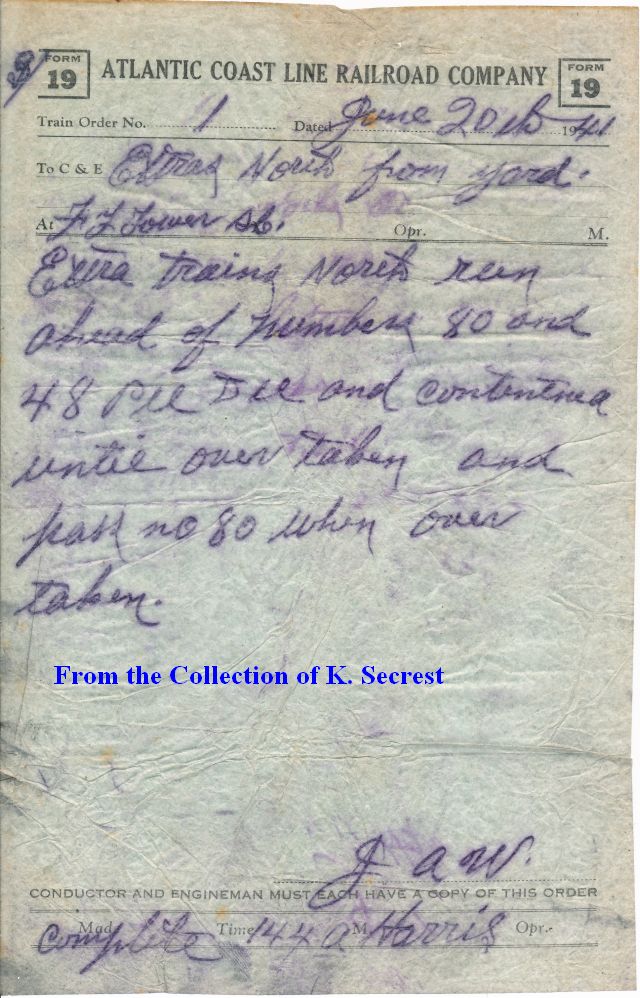 FORM 19 ATLANTIC COAST LINE RAILROAD COMPANY FORM 19
Train Order No. 1 Dated June 20th 1941
To C & E Extras North from yard.
At F Z Tower Opr. M.
Extra trains North run
ahead of numbers 80 and
48 Pee Dee and
until over taken and
pass no 80 when over
taken.
From the Collection of K. Secrest
J A W.
CONDUCTOR AND ENGINEMAN MUST EACH HAVE A COPY OF THIS ORDER
Mad complete Time 144 a M Harris Opr.